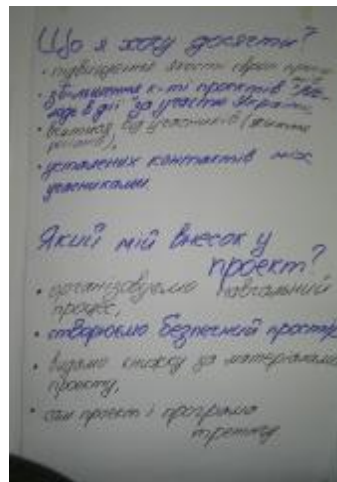 Що я хочу досягти?
• підвищення якості
• збільшення к-ті проектів "Мо-
лодь в дії" за участю України
від учасників (життя
• усталених контактів між
учасниками.
Який мій внесок у
проект?
• організовуємо навчальний
процес,
• створюємо безпечний простір
• видамо книжку за матеріалами
проекту,
• сам проект і програма
тренінгу